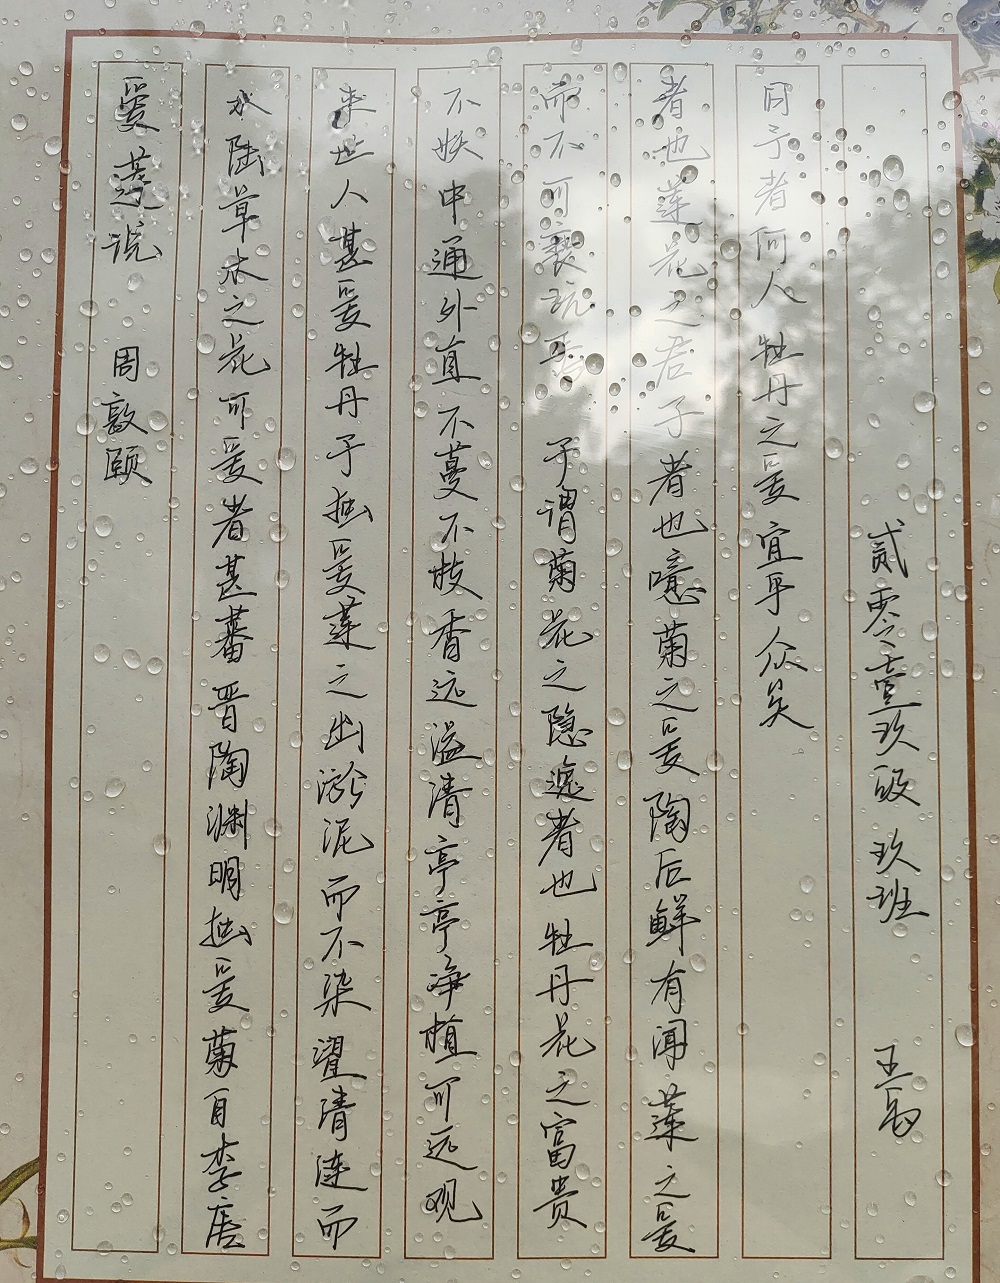 爱莲说 周敦颐
水陆草木之花可爱者甚蕃晋陶渊明独爱菊自李唐
来世人甚爱牡丹予独爱莲之出淤泥而不染濯清涟而
不妖中通外直不蔓不枝香远溢清亭亭净植可远观
而不可亵玩焉 予谓菊花之隐逸者也牡丹花之富贵
者也莲花之君子者也噫菊之爱陶后鲜有闻莲之爱
同予者何人 牡丹之爱宜乎众矣
贰零壹玖级 玖班 王